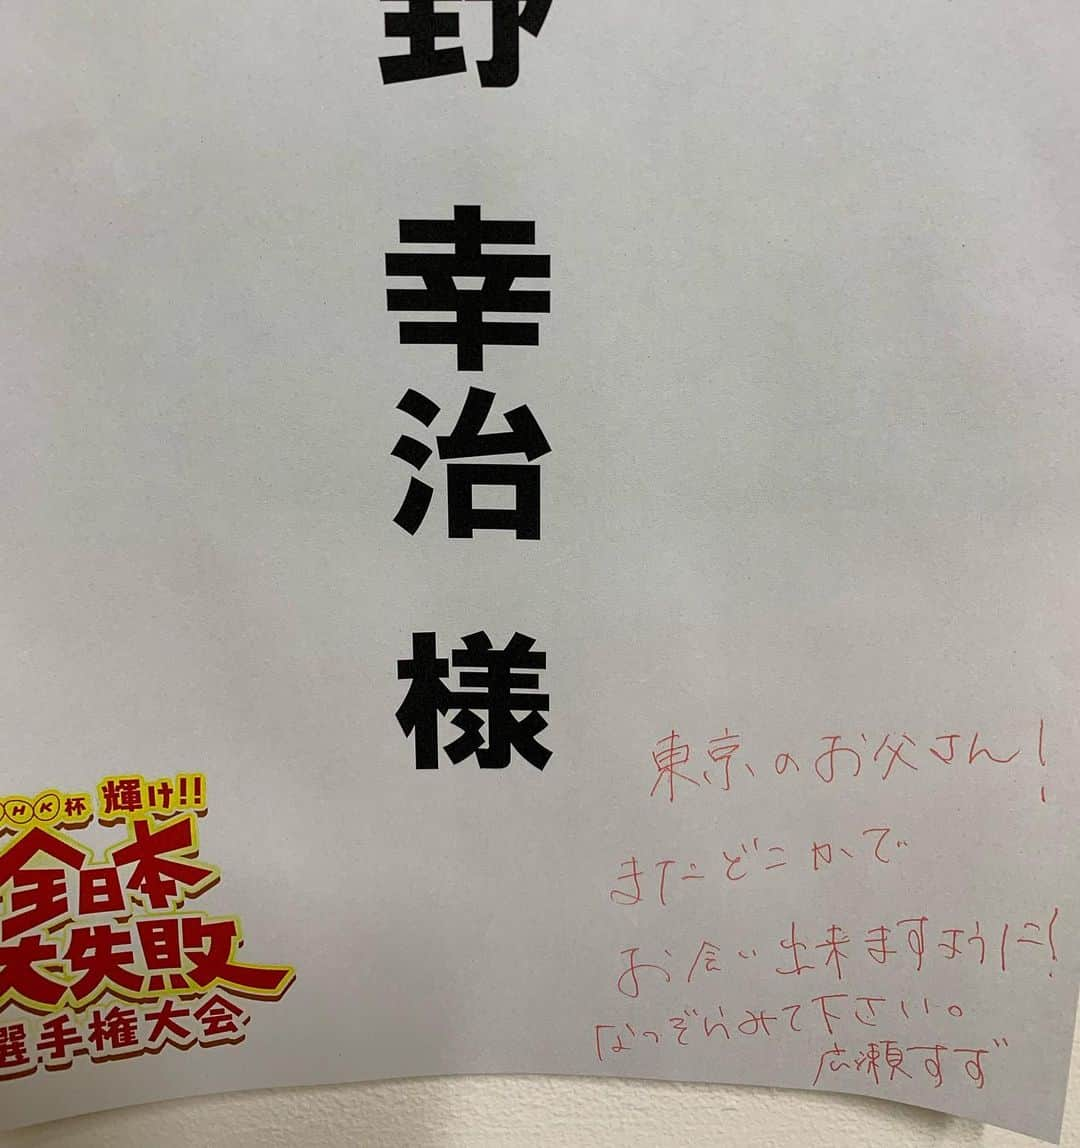 野 幸治 様
東京のお父さん!
まただどこかで
お会い出来ますように!
なつぞらみて下さい。
広瀬すず
NHK杯 輝け!!
全日本
大失敗
選手権大会